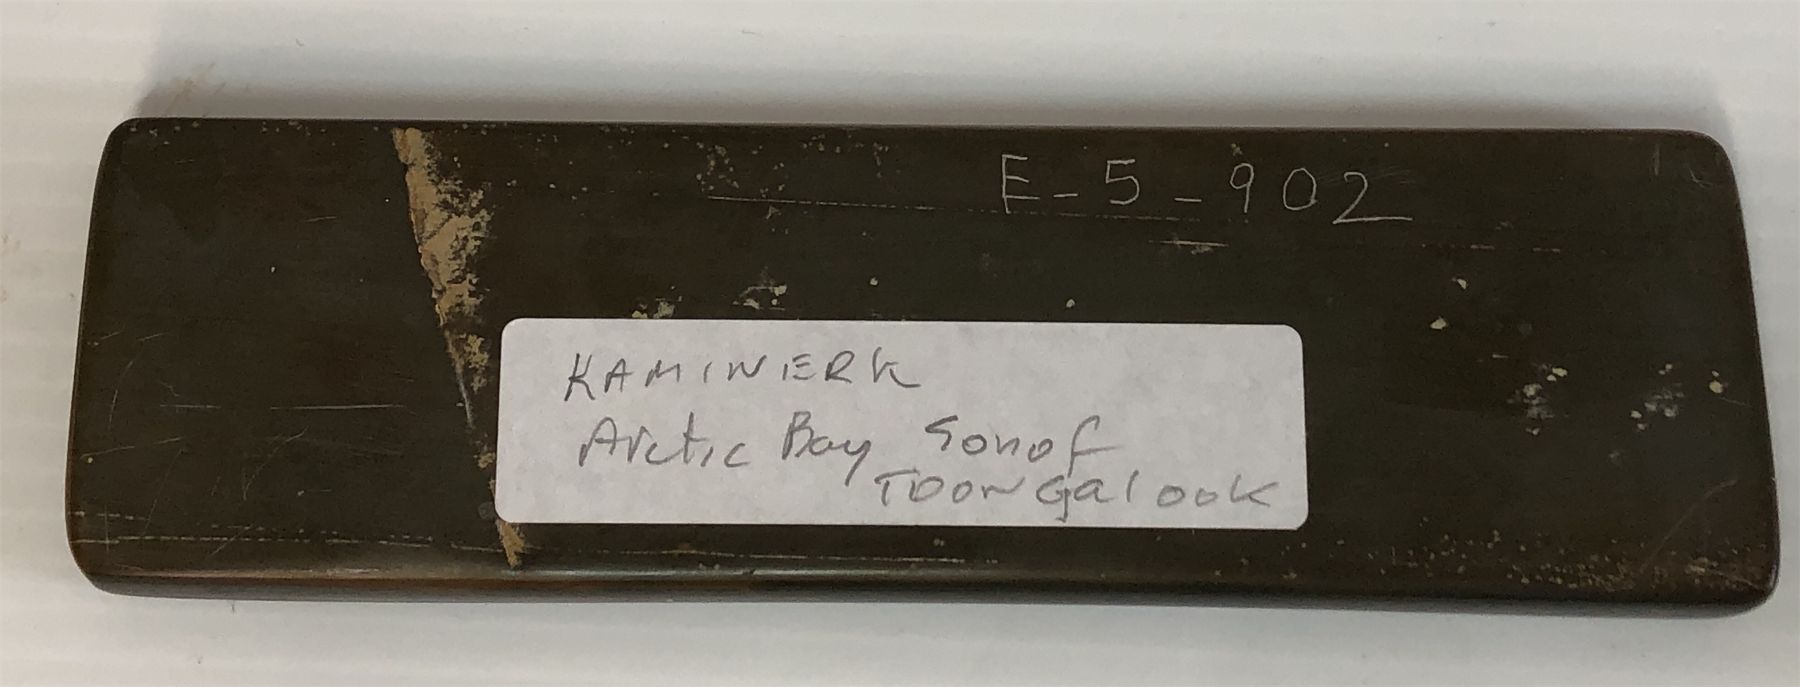 E-5-902
KAMINERK
Arctic Bay Son of
TOONGalook